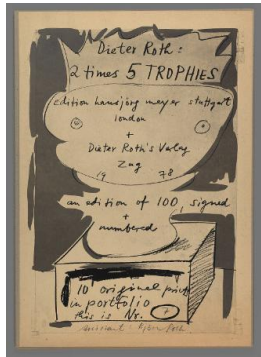 Dieter Roth:
2 times 5 TROPHIES
edition hansjörg mayer stuttgart
london
+
Dieter Roth's Verlag
Zug
19 78
an edition of 100, signed
+
numbered
10 original prints
in portfolio
this is Nr. 7